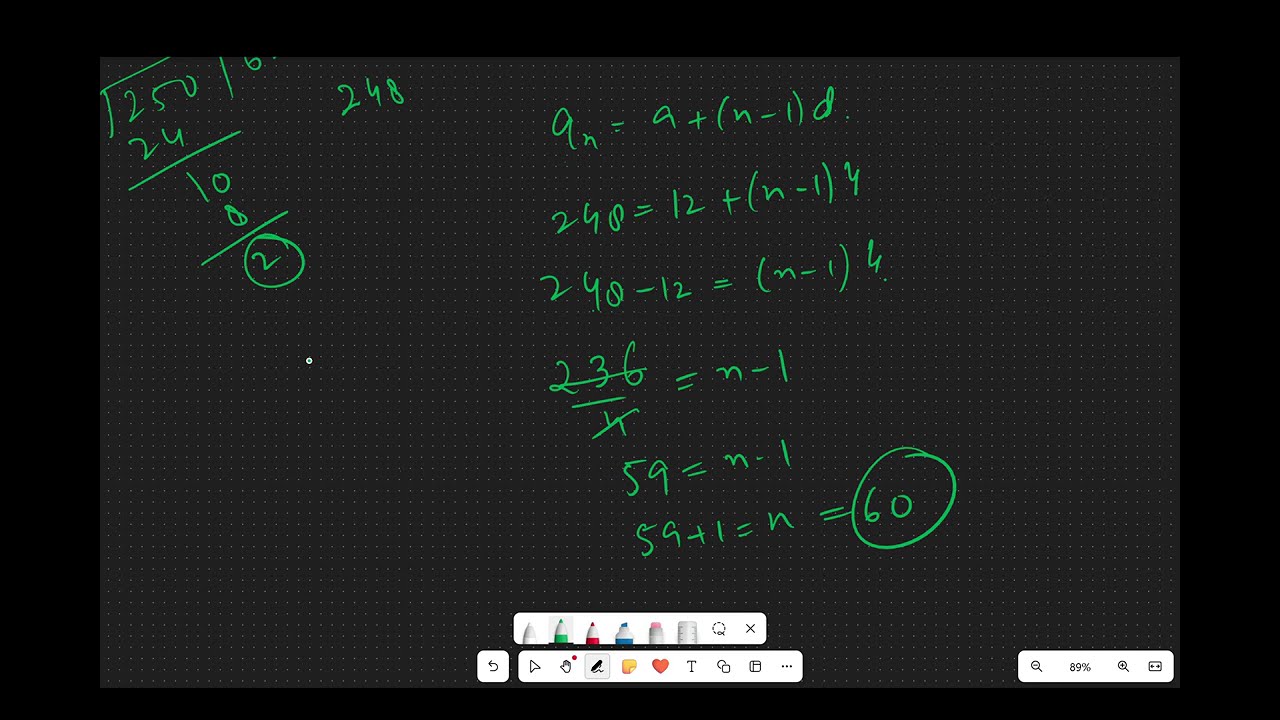 250
24
10
8
2
248
aₙ = a + (n-1)d.
248 = 12 + (n-1)4
248 - 12 = (n-1)4.
236/4 = n-1
59 = n-1
59+1 = n = 60
T
89%